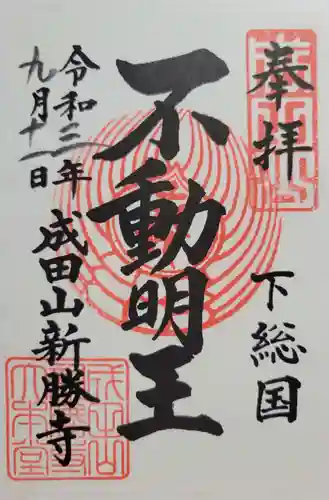 奉拝
下総国
不動明王
令和三年
九月十一日
成田山新勝寺